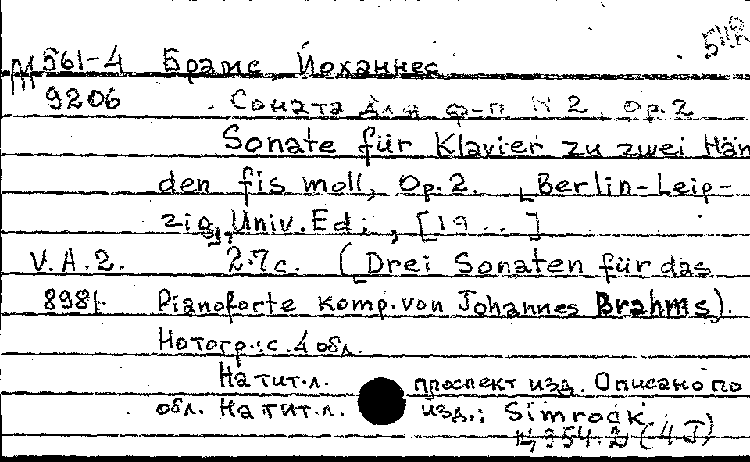 М 561-4 Брамс, Йоханнес
9206 Соната для ф-п N 2, op. 2
Sonate für Klavier zu zwei Hän
den fis moll, Op. 2. Berlin-Leip-
zig, Univ. Ed., [19 . . ]
V. A. 2. 27 с. (Drei Sonaten für das
Pianoforte komp. von Johannes Brahms).
Нотогр.: с. 4 обл.
На тит. л. проспект изд. Описано по
обл. На тит. л. изд.: Simrock